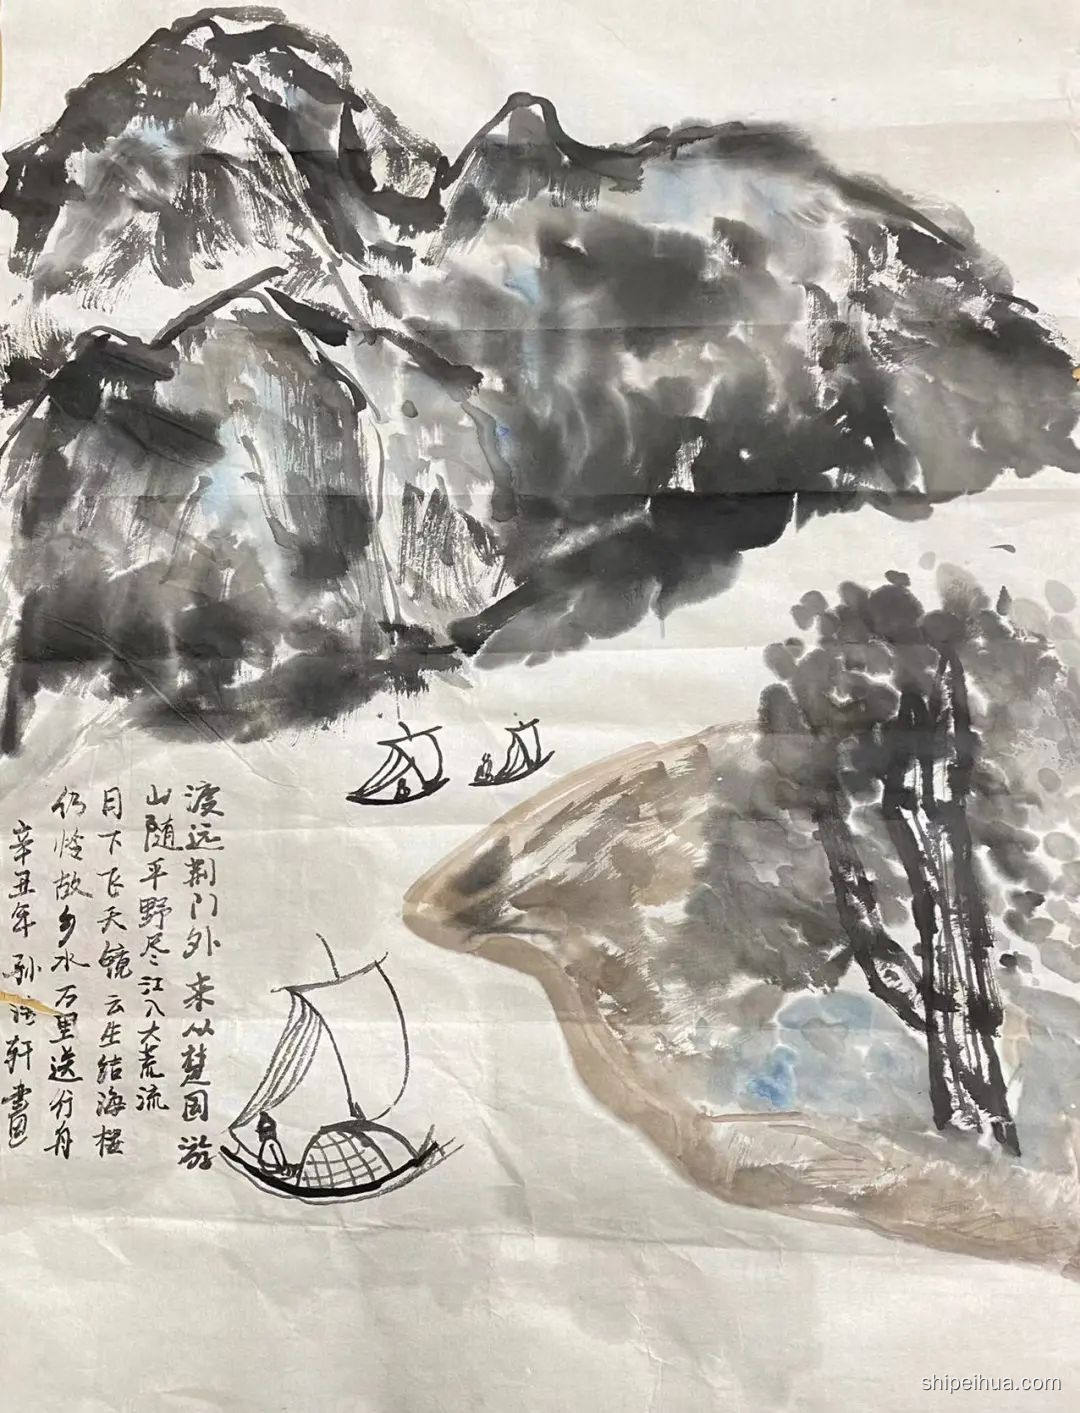 渡远荆门外来从楚国游
山随平野尽江入大荒流
月下飞天镜云生结海楼
仍怜故乡水万里送行舟
辛丑年孙 轩画
shipeihua.com